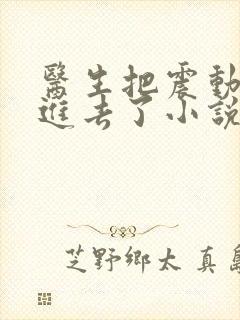 醫生把震動
進去了小說
芝野鄉太 真島